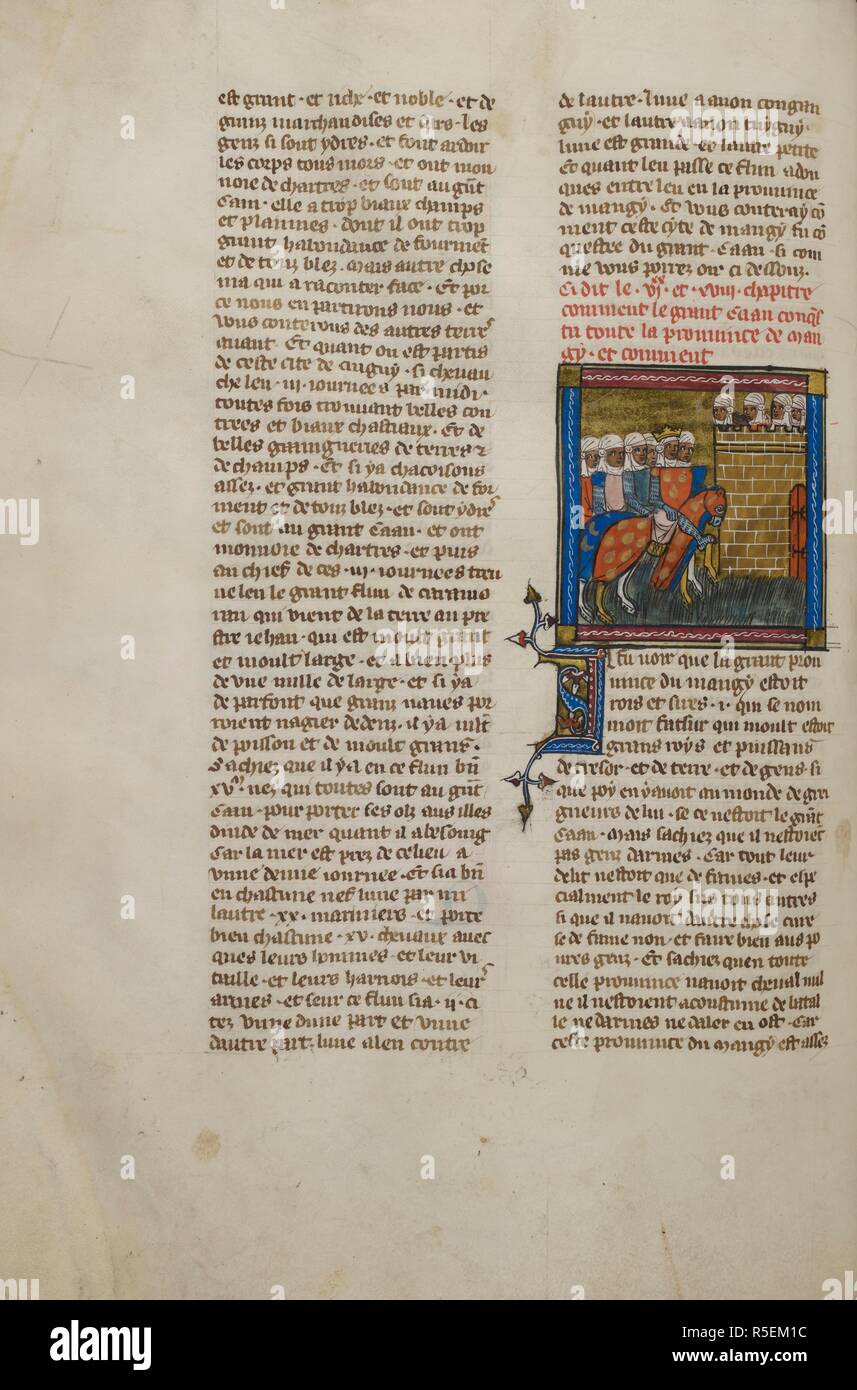 est grant · et riche · et noble · et de
granz marchandises et ars · les
genz si sont ydres · et font ardoir
les corps tous mors · et ont mon
noie de chartres · et sont au gñt
Caan · elle a trop biaux champs
et planines · dont il ont trop
grant habondance de fourmet
et de touz blez · mais autre chose
ma qui a raconter face · Et por
ce nous en partirons nous · et
vous conterons des autres terres
auant · Et quant on est partis
de ceste cite de cuguy · si cheuau
che len · iii · iournees par midi ·
toutes fois trouuant belles con
trees et biaux chastiaux · Et de
belles gaaigneries de terres &
de champs · Et si ya chacoisons
assez · et grant habondance de for
ment et de touz blez · et sont ydres
et sont au grant Caan · et ont
monnoie de chartres · et puis
au chief de ces · iii · iournees treu
ue len le grant flun de caramo
ran qui vient de la terre au pre
stre iehan · qui est moult grant
et moult large · et a bien plus
de vne mille de large · et si ya
de parfont que granz naues por
roient nagier dedenz · il ya mlt
de poisson et de moult grans ·
Sachiez que il ya en ce flun bñ
xvᵐ · nez qui toutes sont au gñt
Caan · pour porter ses olz aus illes
dinde de mer quant il a besoing
Car la mer est prez de ce lieu a
vnne denne iournee · Et si a bñ
en chascune nef lune par mi
lautre · xx · mariniers · et porte
bien chascune · xv · cheuaux auec
ques leurs hommes · et leur vi
taille · et leurs harnois · et leurs
armes · et seur ce flun si a · ii · ci
tez vnne dune part et vnne
dautre part · lune a len contre
de lautre · lune a a non congan
guy · et lautre a a non cuyguy ·
lune est grande et lautre petite
Et quant len passe ce flun adon
ques entre len en la prouuince
de mangy · Et vous conteray cō
ment ceste cyte de mangy fu cō
questee du grant · Caan · si com
me vous porrez oir ci dessouz ·
Ci dit le · vjˣˣ · et · xviii · chapitre
comment le grant Caan conqs
tu toute la prouuince de man
gy · et comment
Il fu voir que la grant prou
uince du mangy estoit
rois et sires · i · qui se nom
moit fatfur qui moult estoit
grans roys et puissans
de tresor · et de terre · et de gens · si
que poy en yauoit au monde de grei
gneurs de lui · se ce nestoit le gñt
Caan · Mais sachiez que il nestoiet
pas genz darmes · Car tout leur
delit nestoit que de fames · et espe
cialment le roy sus tous autres
si que il nauoit dautre chose cure
se de fame non · et faire bien aus po
ures genz · Et sachiez quen toute
celle prouuince nauoit cheual nul
ne il nestoient acoustume de batail
le ne darmes ne daler en ost · Car
ceste prouuince du mangy est assez
alamy
Image ID: R5EM1C
www.alamy.com